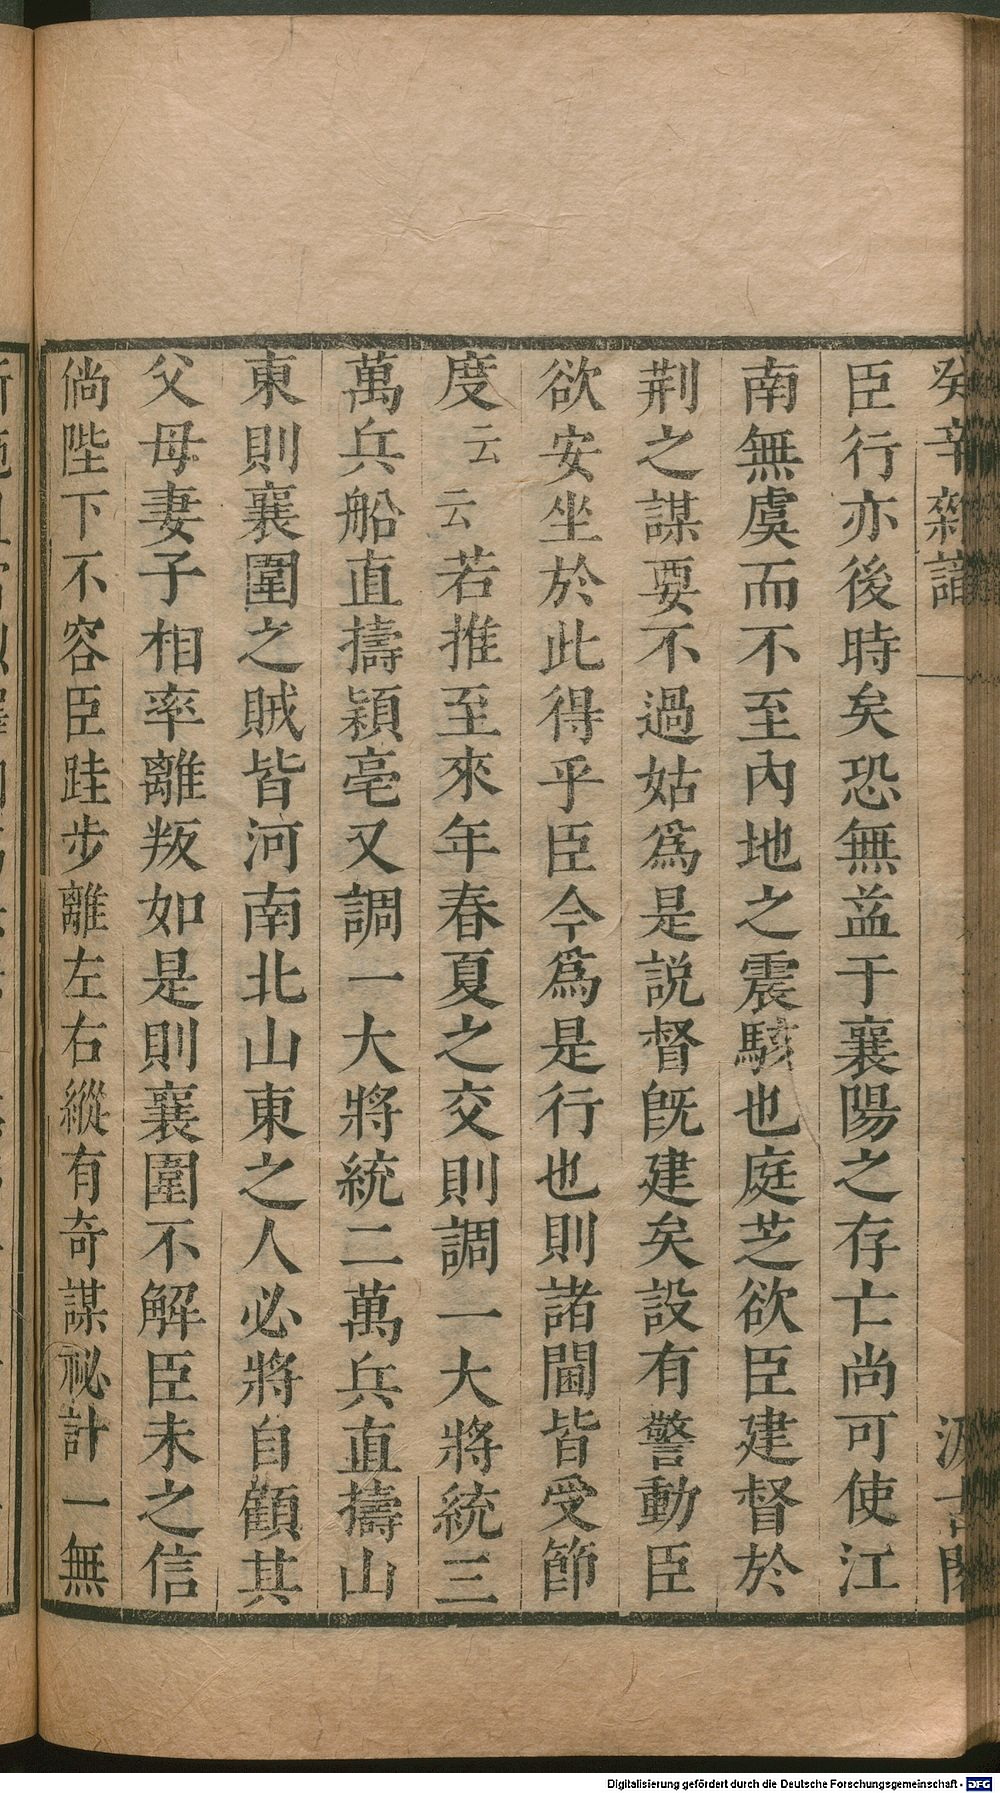 癸辛雜識
汲古閣
臣行亦後時矣恐無益于襄陽之存亡尚可使江
南無虞而不至內地之震駭也庭芝欲臣建督於
荆之謀要不過姑爲是説督旣建矣設有警動臣
欲安坐於此得乎臣今爲是行也則諸閫皆受節
度云云若推至來年春夏之交則調一大將統三
萬兵船直擣潁亳又調一大將統二萬兵直擣山
東則襄圍之賊皆河南北山東之人必將自顧其
父母妻子相率離叛如是則襄圍不解臣未之信
倘陛下不容臣跬步離左右縱有奇謀祕計一無
Digitalisierung gefördert durch die Deutsche Forschungsgemeinschaft - DFG